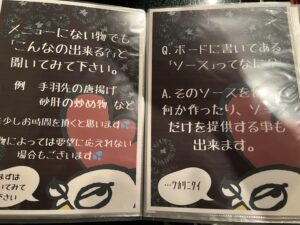 メニューにない物でも
「こんなの出来る?」と
聞いてみて下さい。
例 手羽先の唐揚げ
砂肝の炒め物 など
少しお時間を頂くと思います
物によっては要望に応えれない
場合もございます
まずは
聞いてみて
下さい
Q.ボードに書いてある
「ソース」ってなに?
A.そのソースを
何か作ったり、ソ
だけを提供する事も
出来ます。
…ワカリニクイ